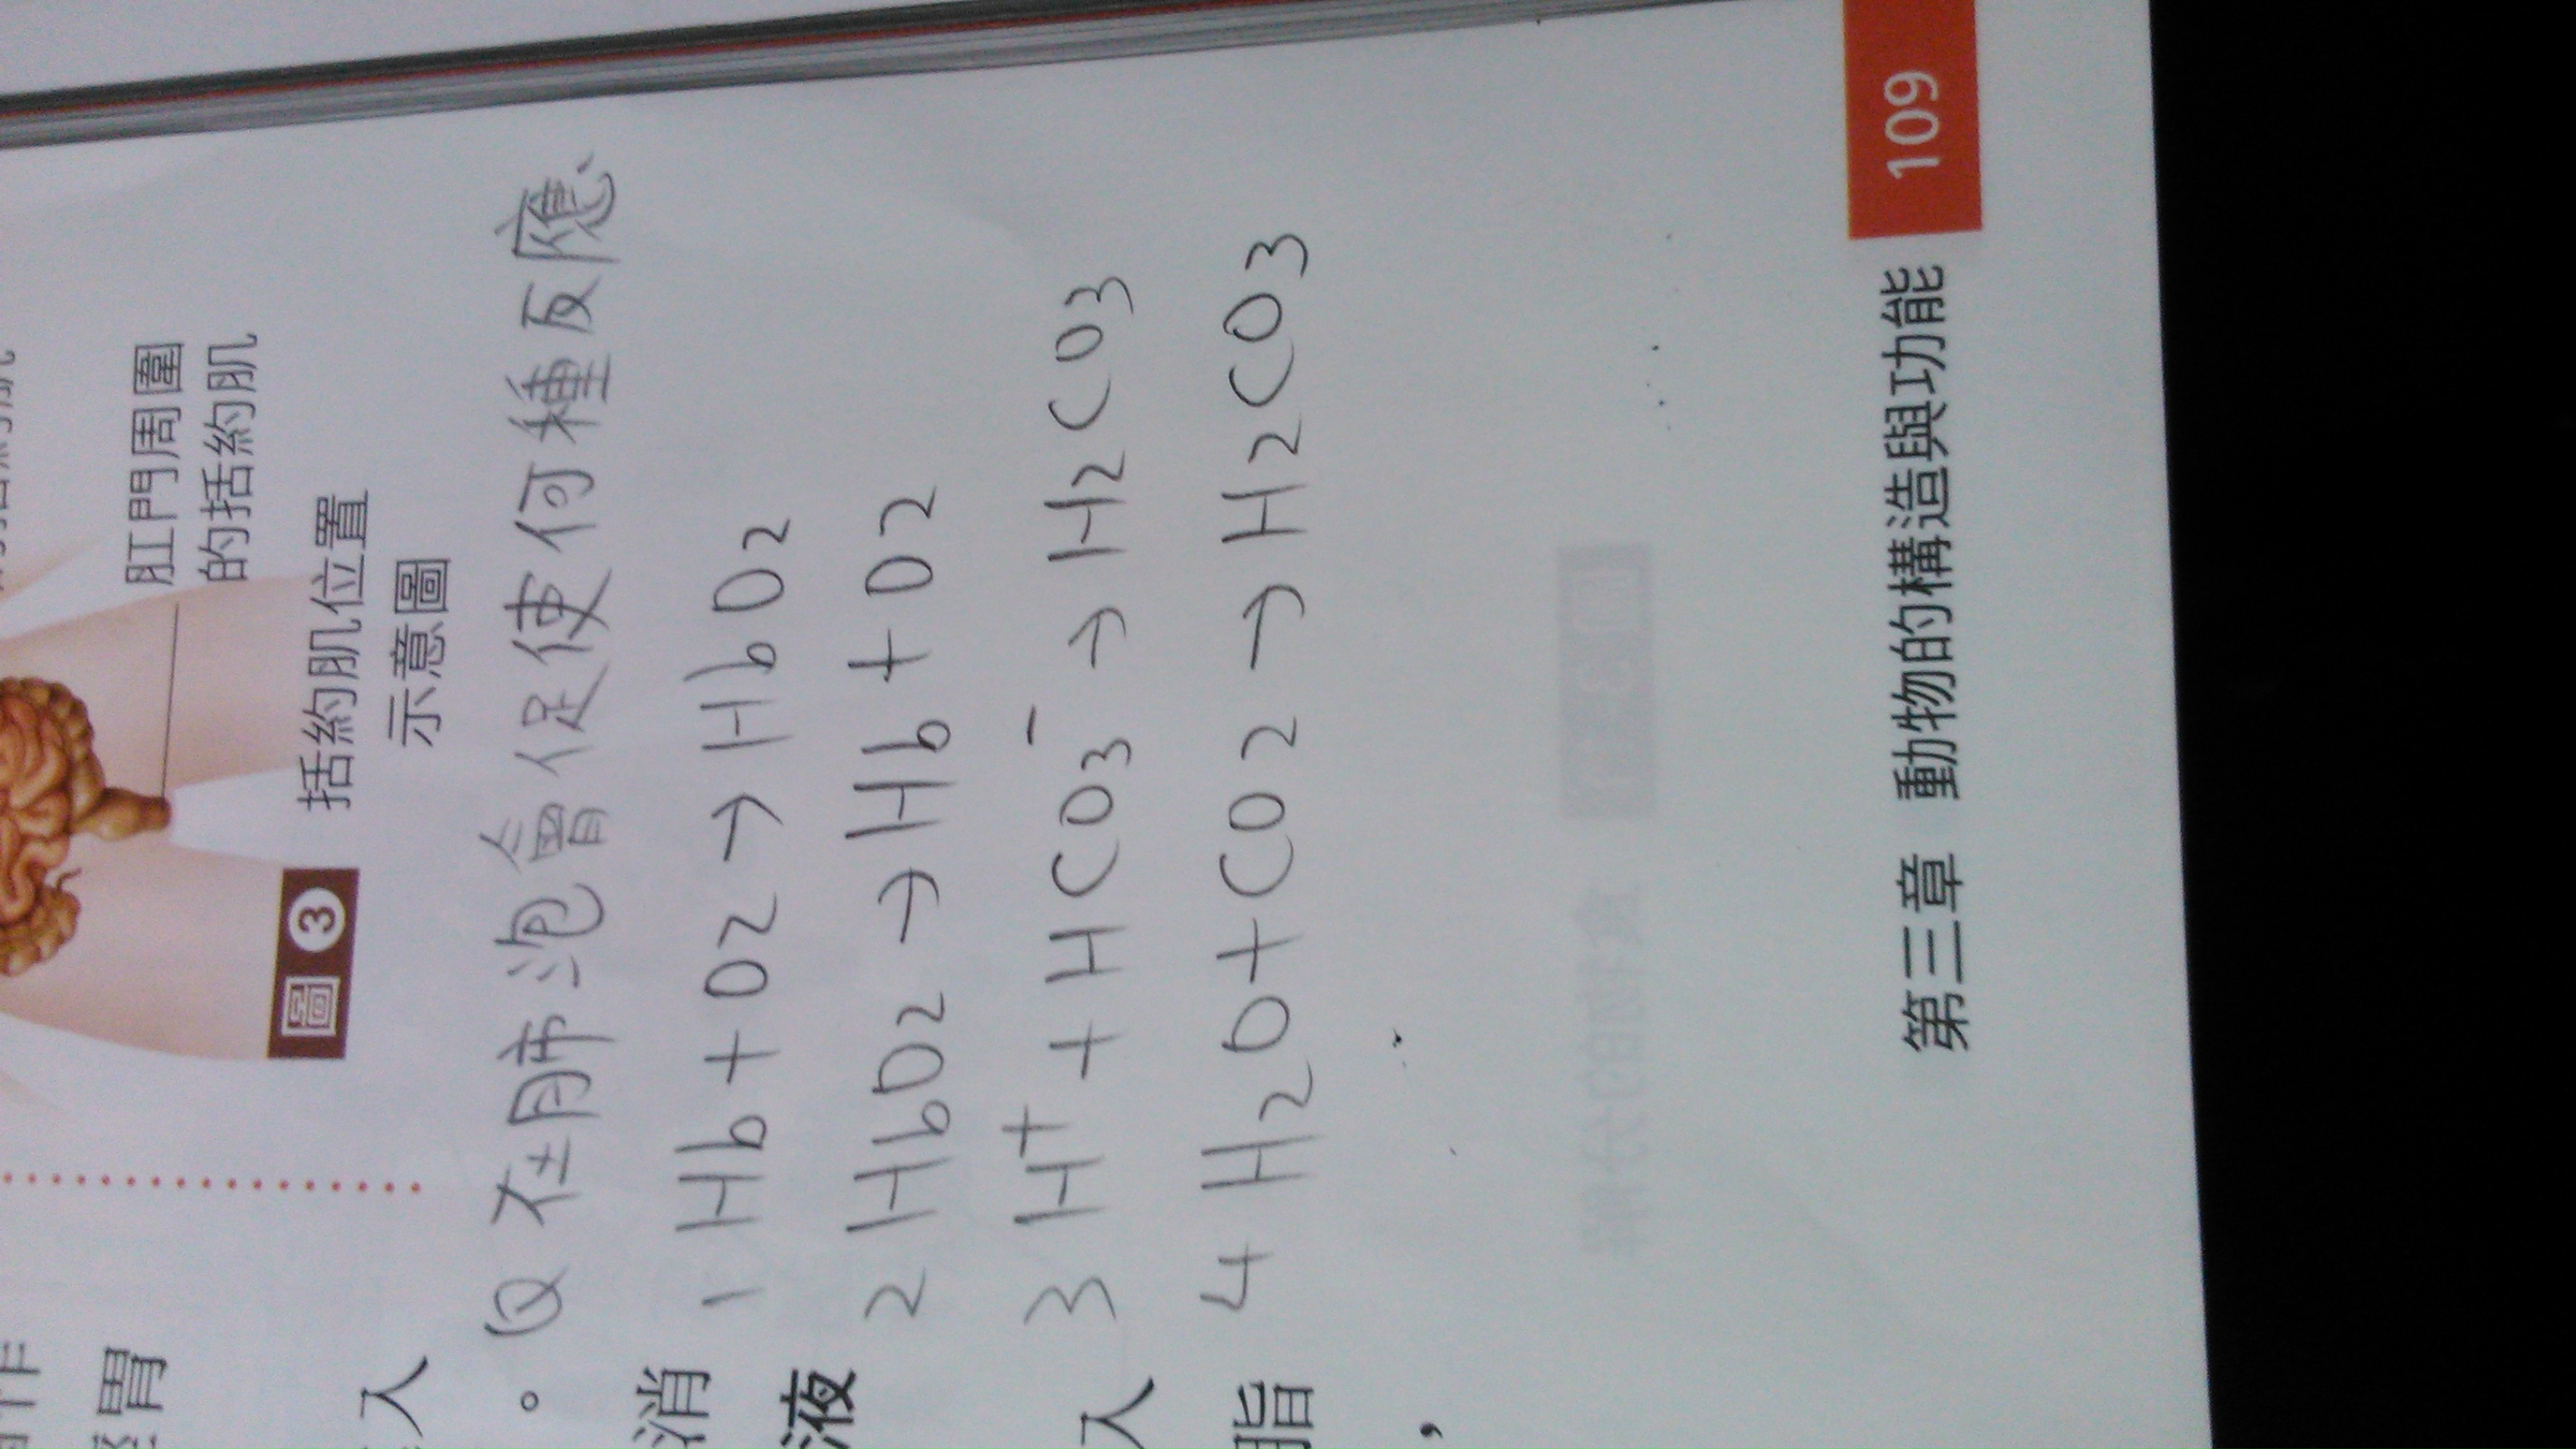 肛門周圍
的括約肌
圖3 括約肌位置
示意圖
Q 在肺泡會促使何種反應
1 Hb + O2 → HbO2
2 HbO2 → Hb + O2
3 H+ + HCO3- → H2CO3
4 H2O + CO2 → H2CO3
胃
入
。
消
液
入
脂
，
第三章 動物的構造與功能 109